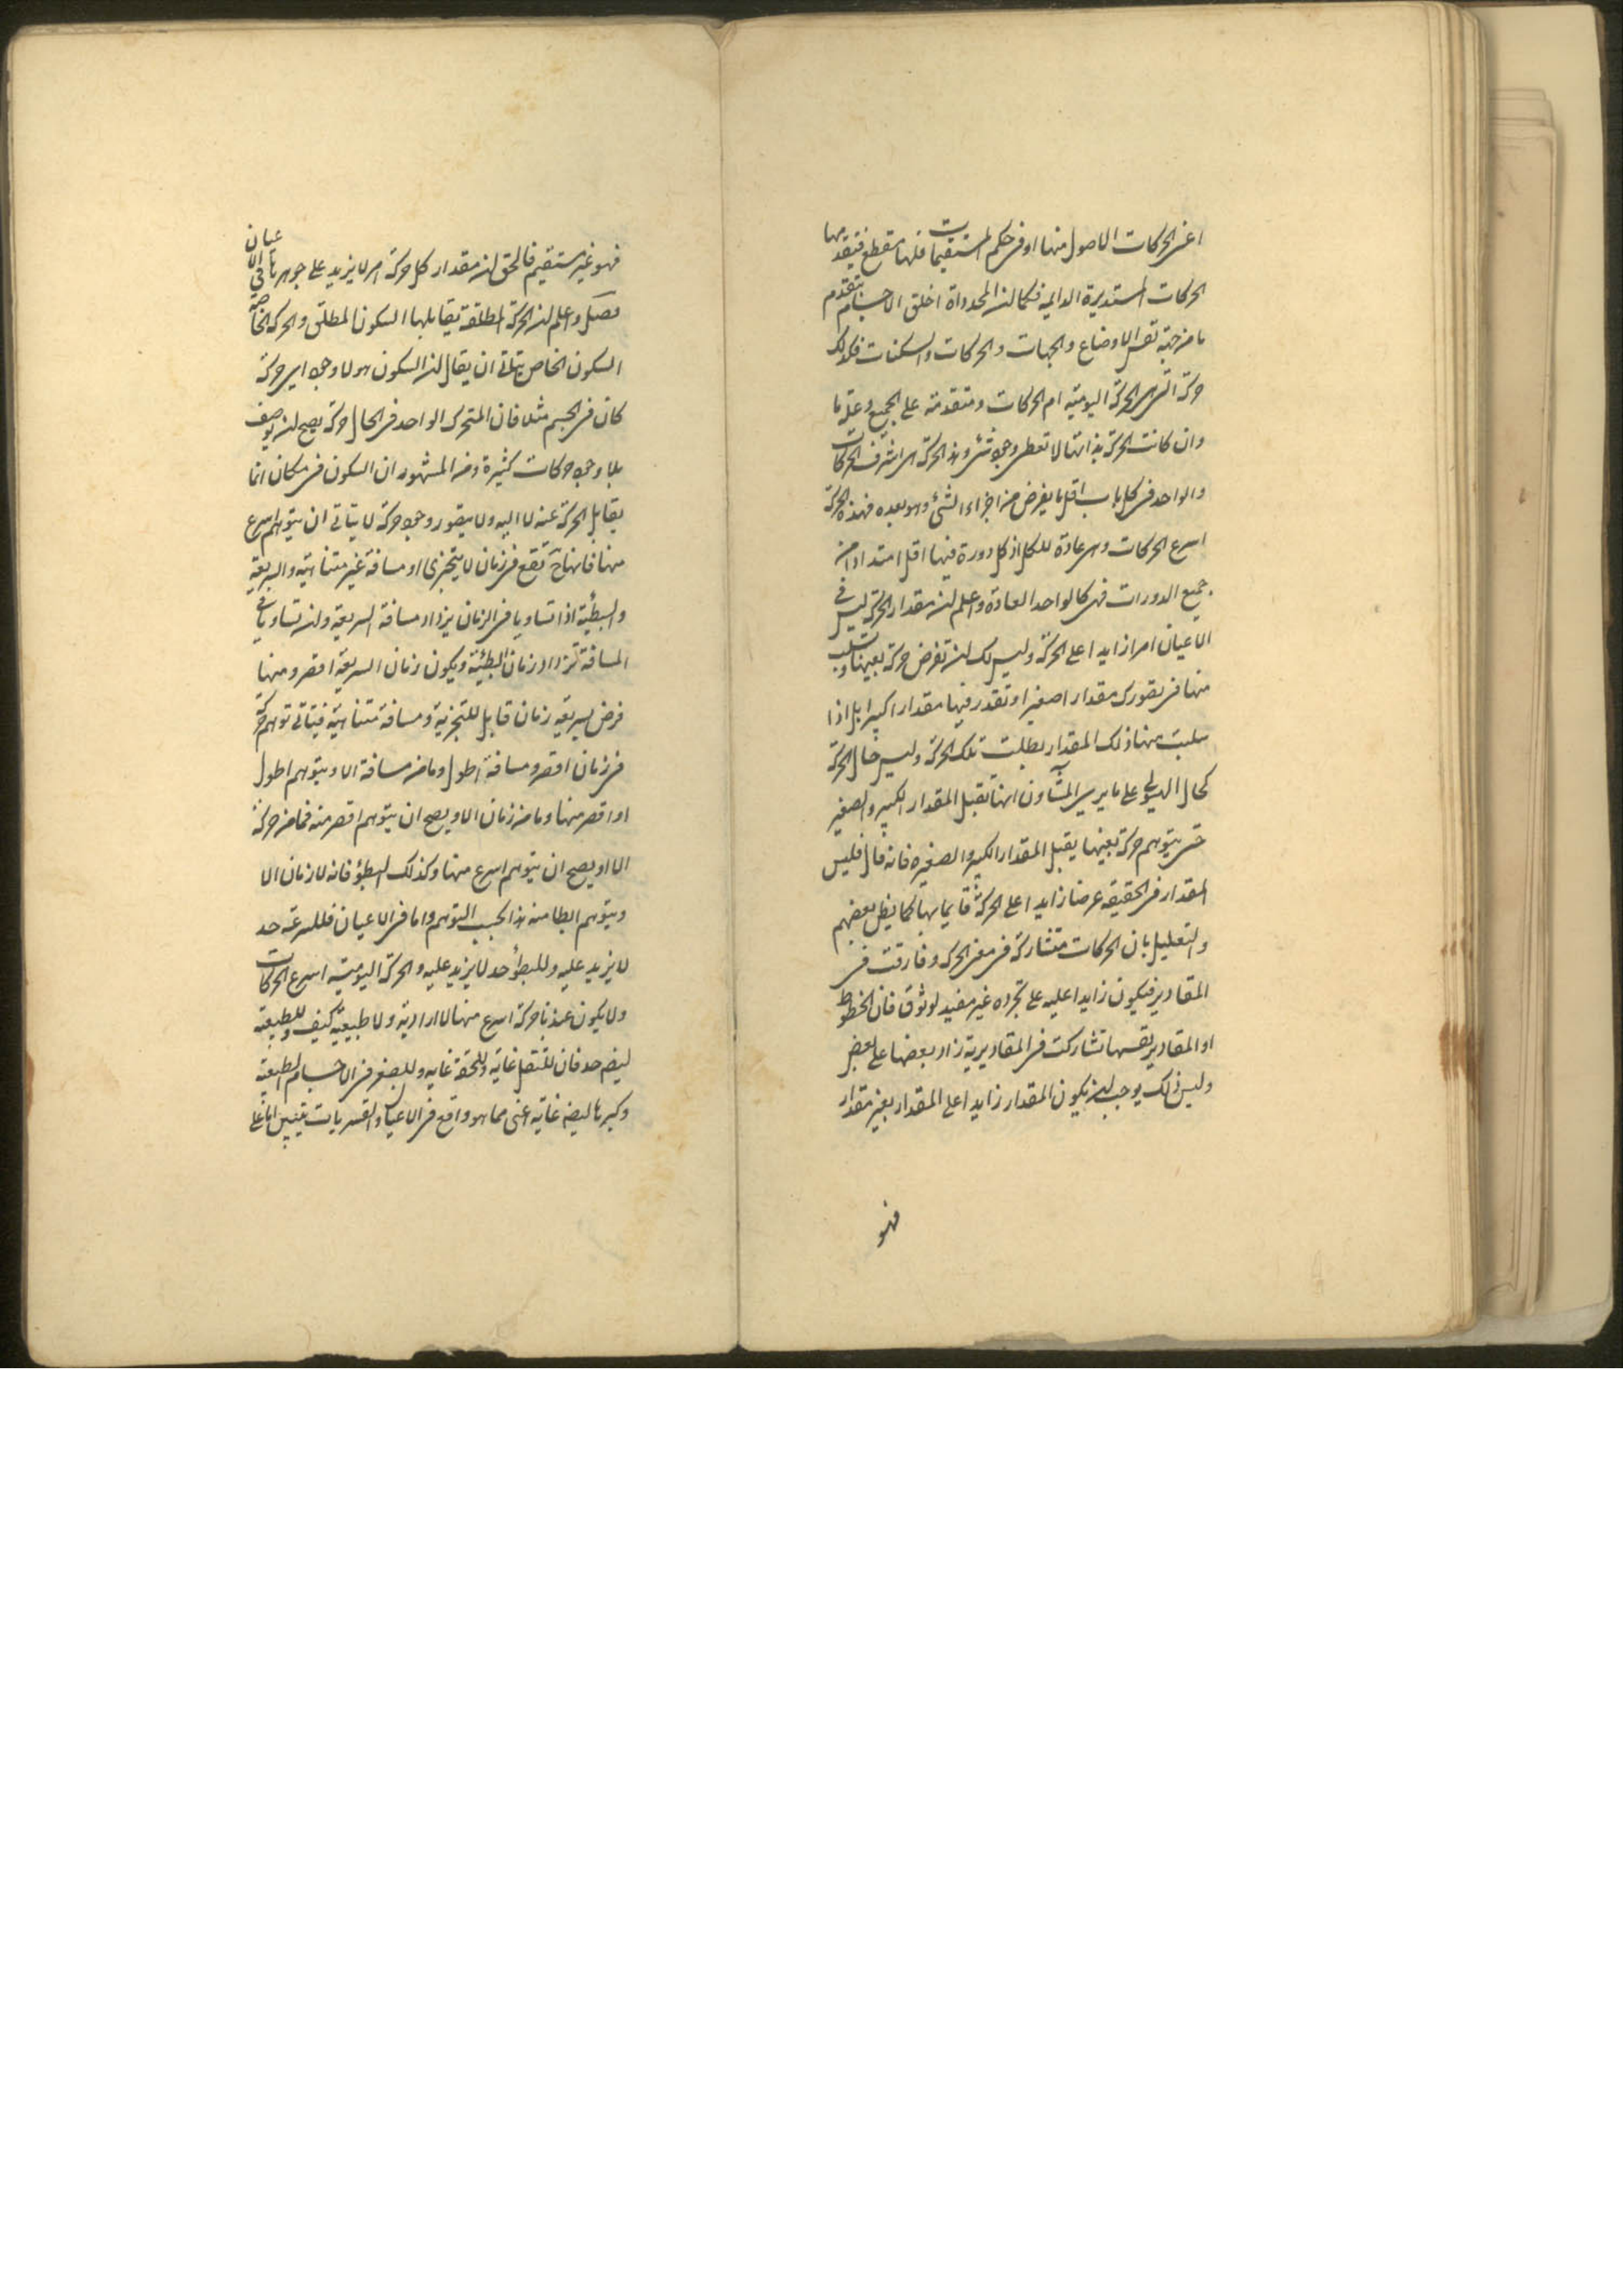 اعنى الحركات الاصول منها او فى حكم المستقيمات فلها مقطع فيتقدمها
الحركات المستديرة الدائمة فكما ان المحدد اقدم الاجسام تتقدم
ما من جهة تعين الاوضاع والجهات والحركات والسكنات فكذلك
حركته التى هى الحركة اليومية ام الحركات ومتقدمة على الجميع وعلة ما
وان كانت الحركة بذاتها لا تعطى وجود شئ وهذه الحركة هى اشرف الحركات
والواحد فى كل باب اقل ما يفرض من اجزاء الشئ وهو يعده فهذه الحركة
اسرع الحركات وهى عادة للكل اذ كل دورة فيها اقل امتدادا من
جميع الدورات فهى كالواحد العادة واعلم ان مقدار الحركة ليس فى
الاعيان امرا زايدا على الحركة وليس لك ان تفرض حركة بعينها وتسلب
منها فى تصورك مقدارا صغيرا او تقدر فيها مقدارا كبيرا بل اذا
سلبت منها ذلك المقدار بطلت تلك الحركة وليس حال الحركة
كحال الهيولى على ما يرى المشاؤن انها تقبل المقدار الكبير والصغير
حتى يتوهم حركة بعينها يقبل المقدار الكبير والصغير فانه محال فليس
المقدار فى الحقيقة عرضا زايدا على الحركة قايما بها كما يظن بعضهم
والتعليل بان الحركات متشاركة فى معنى الحركه وفارقت فى
المقادير فيكون زايدا عليه على تجرده غير مفيد لوثوق فان الخطوط
او المقادير نفسها تشاركت فى المقاديرية زاد بعضها على بعض
وليس ذلك يوجب ان يكون المقدار زايدا على المقدار بغير مقدار
فهو
فهو غير مستقيم فالحق ان مقدار كل حركة امر لا يزيد على جوهرها فى الاعيان
فصل واعلم ان الحركة المطلقة يقابلها السكون المطلق والحركه الخاصة
السكون الخاص يتاتى ان يقال ان السكون هو لا وجود اى حركة
كان فى الجسم مثلا فان المتحرك الواحد فى الحال حركة يصح ان يوصف
بلا وجود حركات كثيرة ومن المشهور ان السكون فى مكان انما
يقابل الحركة عنه لا اليه ولا يتصور وجود حركة لا يتاتى ان يتوهم اسرع
منها فانها تقع فى زمان لا يتجزى او مسافة غير متناهية والسريعة
والبطيئة اذا تساويا فى الزمان يزداد مسافة السريعة وان تساويا فى
المسافة تزداد زمان البطيئة ويكون زمان السريعة اقصر ومهما
فرض لسريعة زمان قابل للتجزية ومسافة متناهية فيتاتى توهم حركة
فى زمان اقصر ومسافة اطول وما من مسافة الا ويتوهم اطول
او اقصر منها وما من زمان الا ويصح ان يتوهم اقصر منه فما من حركة
الا او يصح ان يتوهم اسرع منها وكذلك البطؤ فانه لا زمان الا
ويتوهم ابطا منه هذا بحسب التوهم واما فى الاعيان فللسرعة حد
لا يزيد عليه وللبطؤ حد لا يزيد عليه والحركة اليومية اسرع الحركات
ولا يكون عندنا حركة اسرع منها لا ارادية ولا طبيعية كيف وللطبيعة
ايضا حد فان للثقل غاية وللخفة غايه وللصغر فى الاجسام الطبيعية
وكبرها ايضا غاية اعنى مما هو واقع فى الاعيان والقسريات